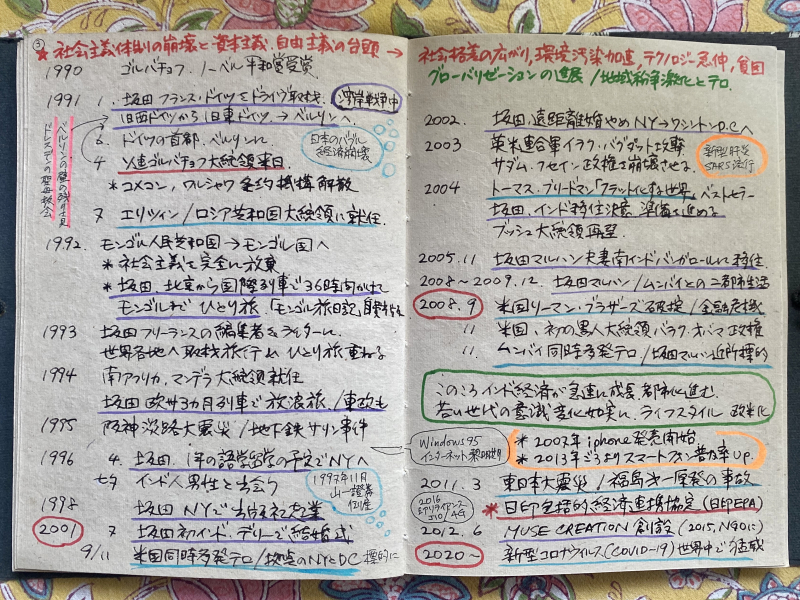 ③
★社会主義体制の崩壊と資本主義、自由主義の台頭→
1990 ゴルバチョフ、ノーベル平和賞受賞
1991 1. 坂田フランス・ドイツをドライヴ取材. 湾岸戦争中
旧西ドイツから旧東ドイツ、→ベルリンへ.
ベルリンの壁の残りを見
ドレスデンの聖母教会
6. ドイツの首都、ベルリンに
日本のバブル
経済崩壊
4 ソ連ゴルバチョフ大統領来日
＊コメコン、ワルシャワ条約機構解散
7 エリツィン/ロシア共和国大統領に就任
1992. モンゴル人民共和国→モンゴル国へ
＊社会主義を完全に放棄
＊坂田、北京から国際列車で36時間かけて
モンゴルまで ひとり旅 「モンゴル旅日記」
1993 坂田フリーランスの編集者&ライターに.
世界各地へ取材旅行&ひとり旅重ねる
1994 南アフリカ、マンデラ大統領就任
坂田 欧州3カ月列車で放浪旅/車故も
1995 阪神淡路大震災/地下鉄サリン事件
Windows95
インターネット黎明期
1996 4. 坂田、1年の語学留学の予定でNYへ
七夕 インド人男性と出会う
1997年11月
山一證券
倒産
1998 坂田NYで出版社を起業
2001 7 坂田初インド・デリーで結婚式
9/11 米国同時多発テロ/拠点のNYとDC標的に
社会格差の広がり,環境汚染加速,テクノロジー急伸,貧困
グローバリゼーションの進展/地域紛争激化とテロ.
2002. 坂田、遠距離婚やめNY→ワシントンD.C.へ
2003 英米連合軍イラク・バグダット攻撃
サダム・フセイン政権を崩壊させる.
新型肺炎
SARS流行
2004 トーマス・フリードマン「フラット化する世界」ベストセラー
坂田、インド移住決意、準備を進める
ブッシュ大統領再選
2005.11 坂田マルハン夫妻南インド・バンガロールに移住.
2008～2009.12. 坂田マルハン/ムンバイとの二都市生活
2008.9 米国リーマン・ブラザーズ破綻/金融危機
11 米国、初の黒人大統領バラク・オバマ政権
11 ムンバイ同時多発テロ/坂田マルハン近所標的
このころインド経済が急速に成長、都市化進む.
若い世代の意識変化如実に、ライフスタイル 欧米化
＊2007年iphone発売開始.
＊2013年ごろよりスマートフォン普及率UP.
2011.3 東日本大震災/福島第一原発の事故
2016
リライアンス
JIO/4G
＊日印包括的経済連携協定(日印EPA)
2012.6 MUSE CREATION 創設 (2015, NGOに)
2020～ 新型コロナウイルス(COVID-19)世界中で猛威